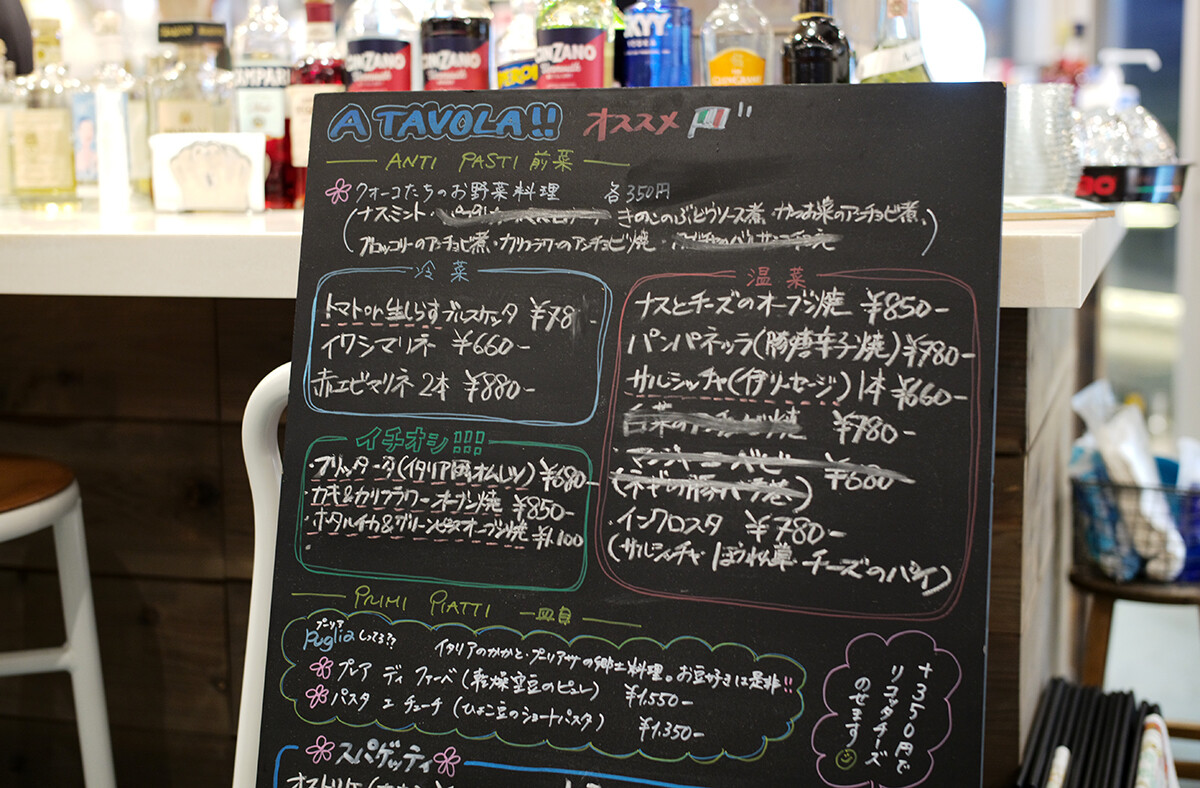 CINZANO
CINZANO
CINZANO
XYY
A TAVOLA!! オススメ
ANTI PASTI 前菜
クオーコたちのお野菜料理 各350円
(ナスミント・ きのこのぶどうソース煮・かつお菜のアンチョビ煮、
ブロッコリーのアンチョビ煮・カリフラワーのアンチョビ焼・ )
冷菜
トマトor生しらすブルスケッタ ¥78 -
イワシマリネ ¥660-
赤エビマリネ 2本 ¥880-
温菜
ナスとチーズのオーブン焼 ¥850-
パンパネッラ(豚唐辛子焼) ¥780-
サルシッチャ(伊ソーセージ) 1本 ¥660-
白菜のアンチョビ焼 ¥780-
¥680-
(ネギの豚バラ巻)
・インクロスタ ¥780-
(サルシッチャ ほうれん草 チーズのパイ)
イチオシ!!!
・フリッタータ(イタリア風オムレツ) ¥680-
・カキ&カリフラワーオーブン焼 ¥850-
・ホタルイカ&グリーンピースオーブン焼 ¥1100
PRIMI PIATTI 一皿目
プーリア
Pugliaしってる??
イタリアのかかと・プーリア州の郷土料理。お豆好きは是非!!
プレア ディ ファーベ(乾燥空豆のピュレ) ¥1.550-
パスタ エ チェーチ(ひよこ豆のショートパスタ) ¥1.350-
+350円で
リコッタチーズ
のせます
スパゲッティ